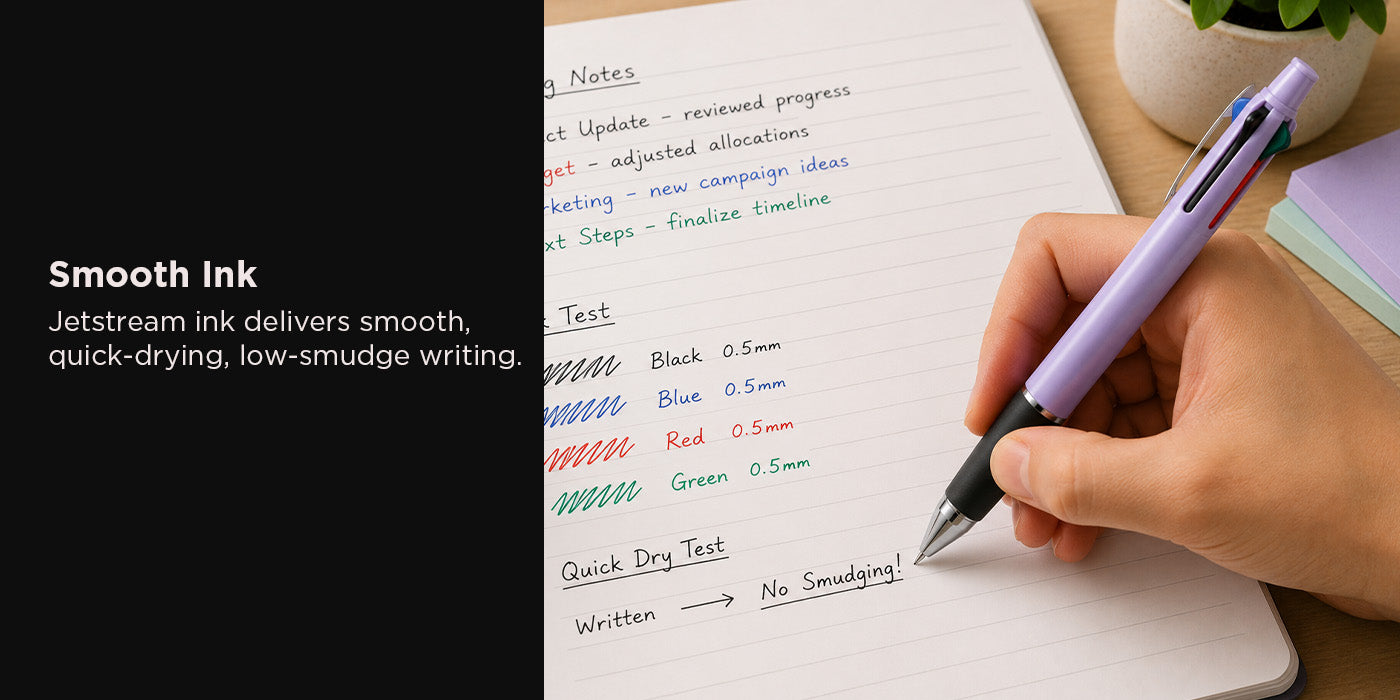 Smooth Ink
Jetstream ink delivers smooth,
quick-drying, low-smudge writing.
g Notes
ct Update – reviewed progress
get – adjusted allocations
rketing – new campaign ideas
xt Steps – finalize timeline
Test
Black 0.5mm
Blue 0.5mm
Red 0.5mm
Green 0.5mm
Quick Dry Test
Written → No Smudging!